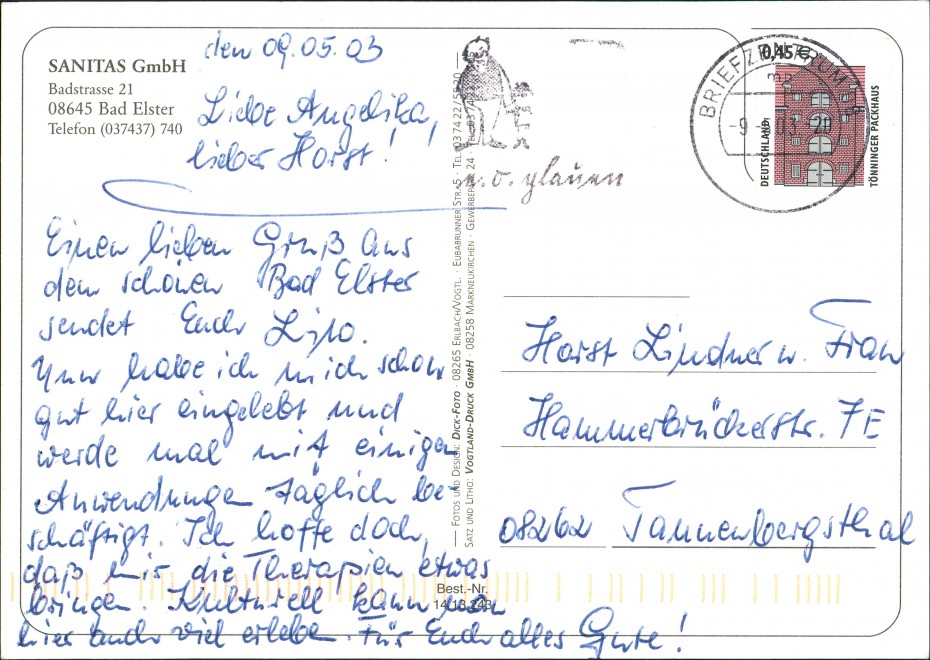 SANITAS GmbH
Badstrasse 21
08645 Bad Elster
Telefon (037437) 740
den 09.05.03
Liebe Angelika,
lieber Horst!
Einen lieben Gruß aus
dem schönen Bad Elster
sendet Euch
Nun habe ich mich schon
gut hier eingelebt und
werde mal mit einigen
Anwendungen täglich be-
schäftigt. Ich hoffe doch,
daß mir die Therapien etwas
bringen. Kulturell kann man
hier auch viel erleben. Für Euch alles Gute!
FOTOS UND DESIGN: DICK-FOTO · 08265 ERLBACH/VOGTL. · EUBABRUNNER STR. 5 · TEL.
SATZ UND LITHO: VOGTLAND-DRUCK GMBH · 08258 MARKNEUKIRCHEN · 24
Best.-Nr.
14.13.243
BRIEFZENTRUM
0,45 €
DEUTSCHLAND
TÖNNINGER PACKHAUS
Horst Lindner u. Frau
Hammerbrückerstr. 7E
08262 Tannenbergsthal